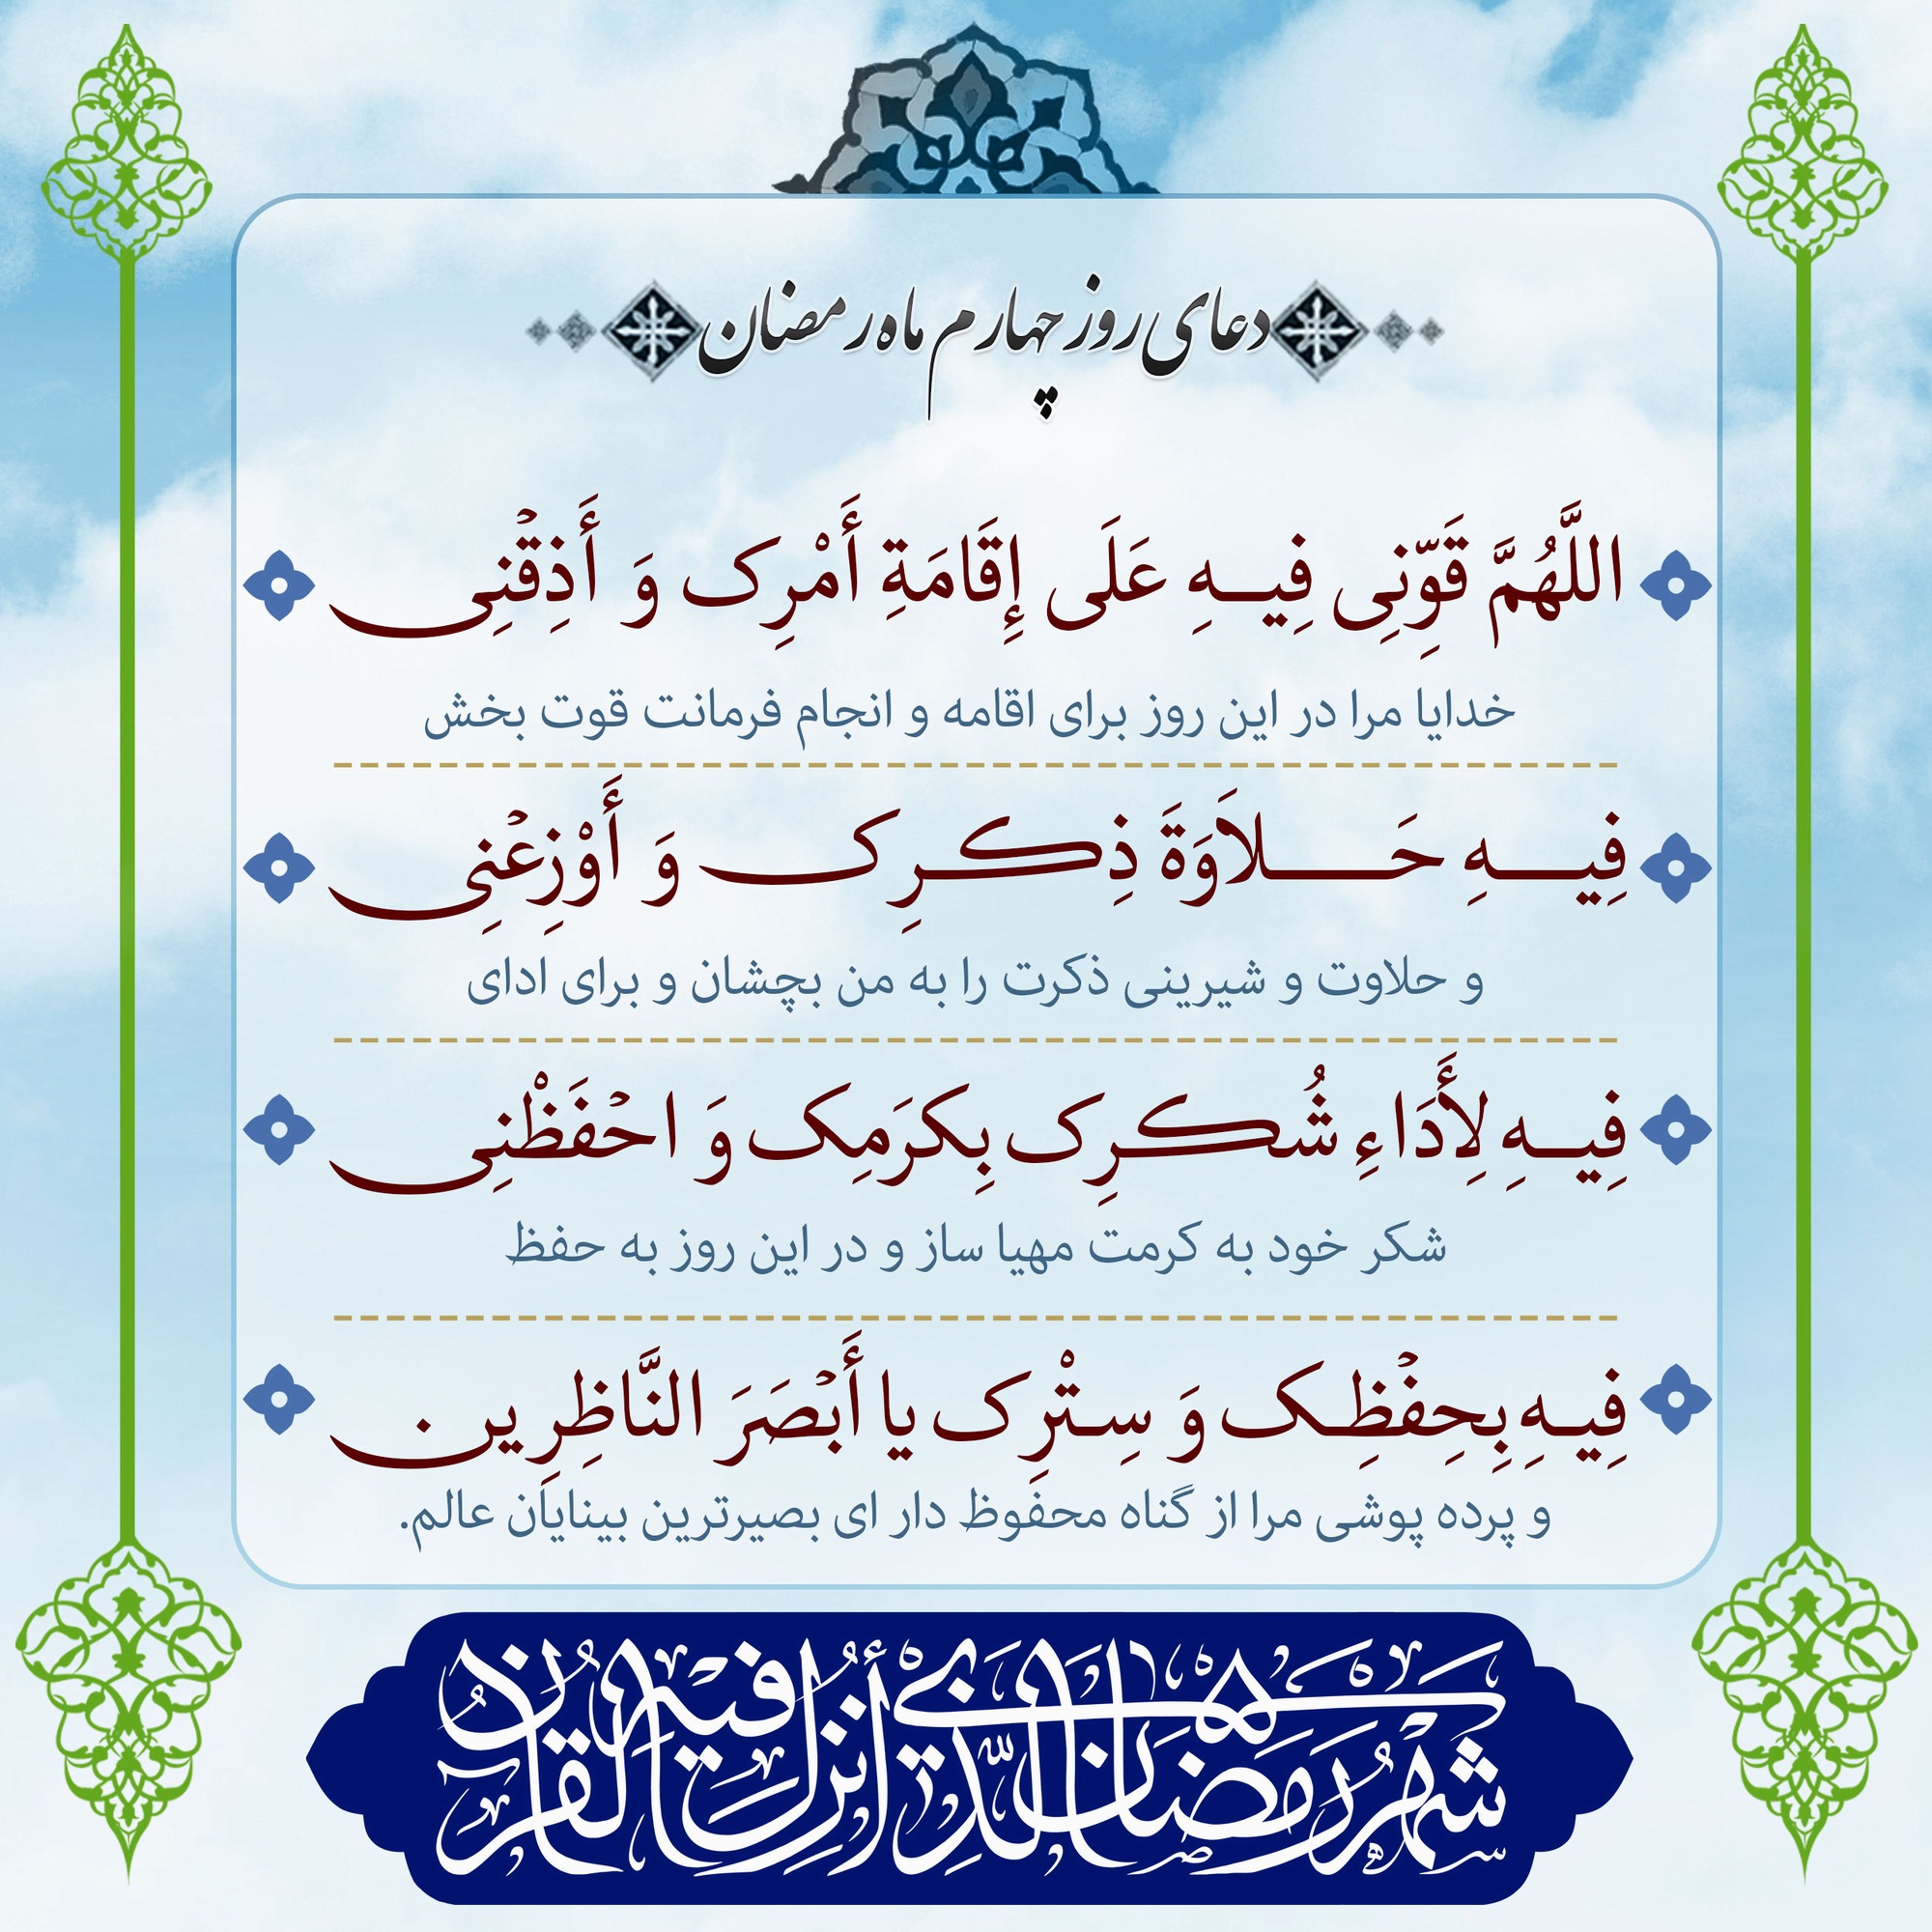 دعای روز چهارم ماه رمضان
اللَّهُمَّ قَوِّنِی فِیهِ عَلَی إِقَامَةِ أَمْرِک وَ أَذِقْنِی
خدایا مرا در این روز برای اقامه و انجام فرمانت قوت بخش
فِیهِ حَلاَوَةَ ذِکرِک وَ أَوْزِعْنِی
و حلاوت و شیرینی ذکرت را به من بچشان و برای ادای
فِیهِ لِأَدَاءِ شُکرِک بِکرَمِک وَ احْفَظْنِی
شکر خود به کرمت مهیا ساز و در این روز به حفظ
فِیهِ بِحِفْظِک وَ سِتْرِک یا أَبْصَرَ النَّاظِرِین
و پرده پوشی مرا از گناه محفوظ دار ای بصیرترین بینایان عالم.
شهر رمضان الذی أنزل فیه القرآن